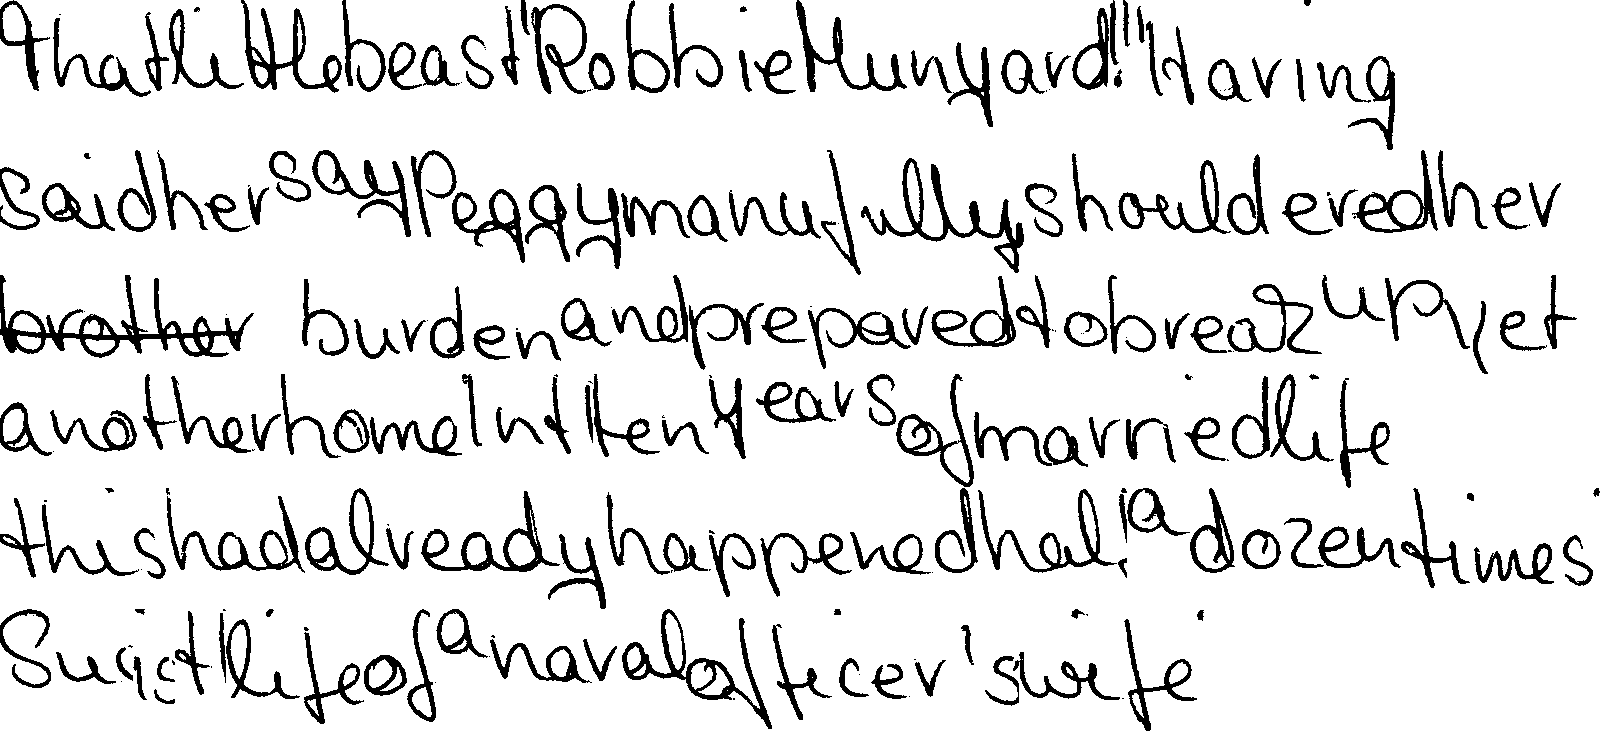 That little beast "Robbie Munyard!" "Having
said her say Peggy manufully, shouldered her
brother burden and prepared to break up yet
another home In ten years of married life
this had already happened half a dozen times
Such life of a naval officer's wife